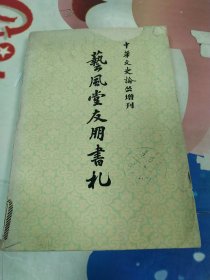 中華文史論叢增刊
藝風堂友朋書札